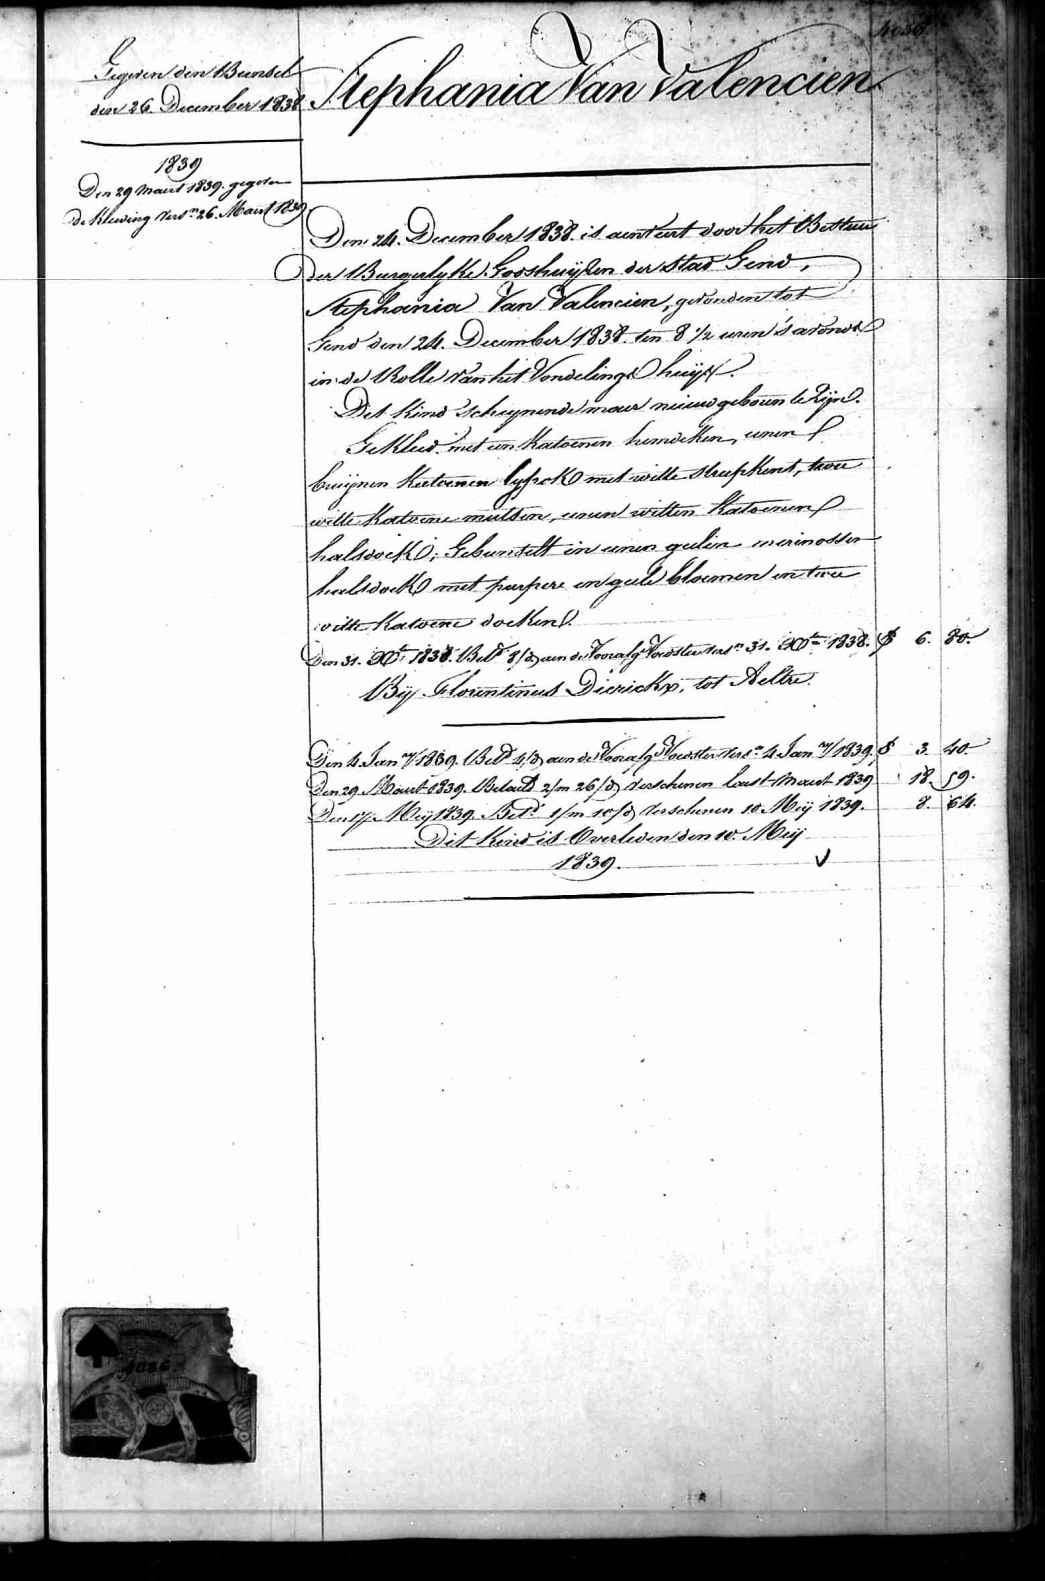 4086
Gegeven den Bunsel
den 26. December 1838
Stephania Van Valencien
1839
Den 29 Maert 1839. gegeven
de Kleeding vers.n 26. Maert 1839
Den 24. December 1838. is aenveert door het Bestuur
der Burgerlyke Godshuijzen der Stad Gend,
Stephania Van Valencien, gevonden tot
Gend den 24. December 1838. ten 8 1/2 uren 's avonds
in de Rolle van het Vondelings huijs.
Dit Kind scheynende maer nieuwgeboren te Zijn.
Gekleed met een Katoenen hemdeken, eenen
bruijnen Katoenen lyfrok met witte streepkens, twee
witte Katoene mutsen, eenen witten Katoenen
halsdoek; Gebunselt in eenen geelen merinossen
halsdoek met purpere en geele bloemen en twee
witte Katoene doeken.
Den 31. Xb. 1838. Bet.d 8/d aen de Voorafg. Voedster vers.n 31. Xb. 1838. 6. 80.
Bij Florentinus Dierickx, tot Aeltre.
Den 4 Jan.ry 1839. Bet.d 4/d aen de Voorafg. Voedster vers.n 4 Jan.ry 1839. 3. 40.
Den 29. Maert 1839. Betaeld 2/m 26/d verschenen laest Maert 1839 18. 59.
Den 17. Meij 1839. Bet.d 1/m 10/d verschenen 10 Meij 1839. 8. 64.
Dit Kind is Overleden den 10. Meij
1839.
4086